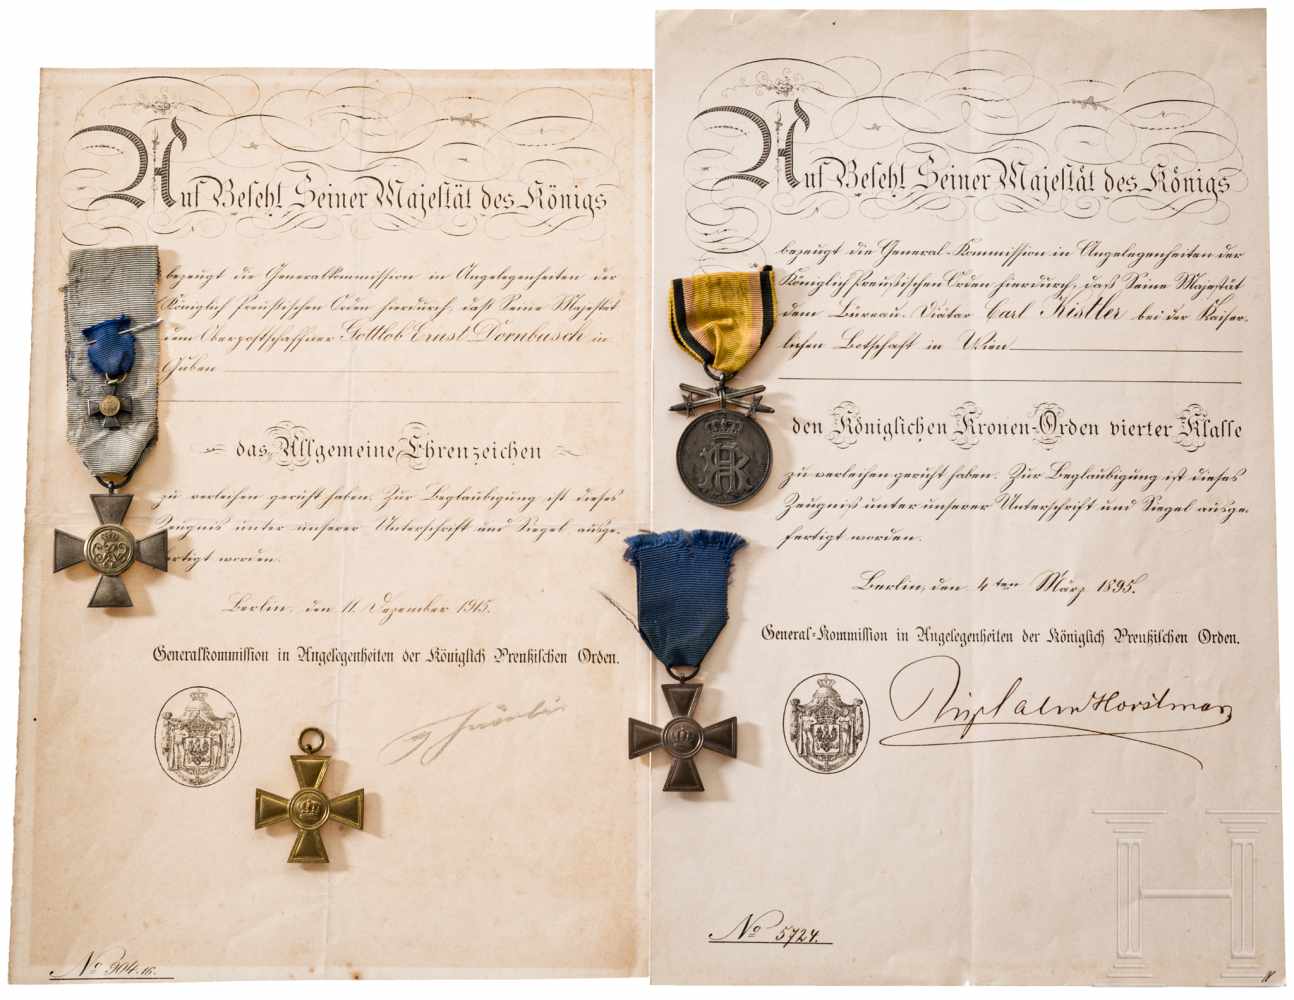 Auf Befehl Seiner Majestät des Königs
bezeugt die Generalkommission in Angelegenheiten der
Königlich Preußischen Orden hierdurch, daß Seine Majestät
dem Oberpostschaffner Gottlob Ernst Dornbusch in
Guben
das Allgemeine Ehrenzeichen
zu verleihen geruht haben. Zur Beglaubigung ist dieses
Zeugnis unter unserer Unterschrift und Siegel ausge-
fertigt worden.
Berlin, den 11. Dezember 1915.
Generalkommission in Angelegenheiten der Königlich Preußischen Orden.
No 904.16.
Auf Befehl Seiner Majestät des Königs
bezeugt die General-Kommission in Angelegenheiten der
Königlich Preussischen Orden hierdurch, daß Seine Majestät
dem Büreau-Diätar Carl Kistler bei der Kaiser-
lichen Botschaft in Wien
den Königlichen Kronen-Orden vierter Klasse
zu verleihen geruht haben. Zur Beglaubigung ist dieses
Zeugniß unter unserer Unterschrift und Siegel ausge-
fertigt worden.
Berlin, den 4ten März 1895.
General-Kommission in Angelegenheiten der Königlich Preußischen Orden.
No 5724.